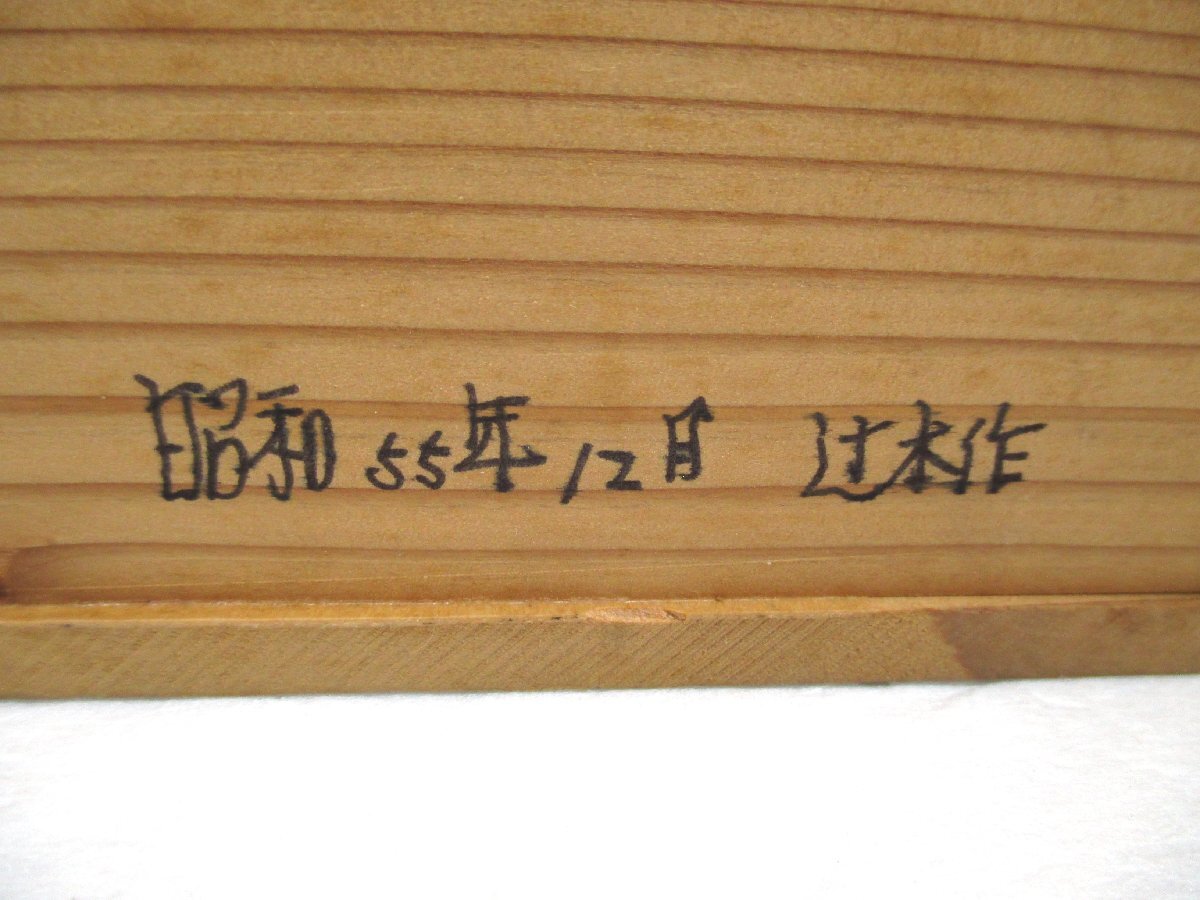 昭和55年12月 辻本作